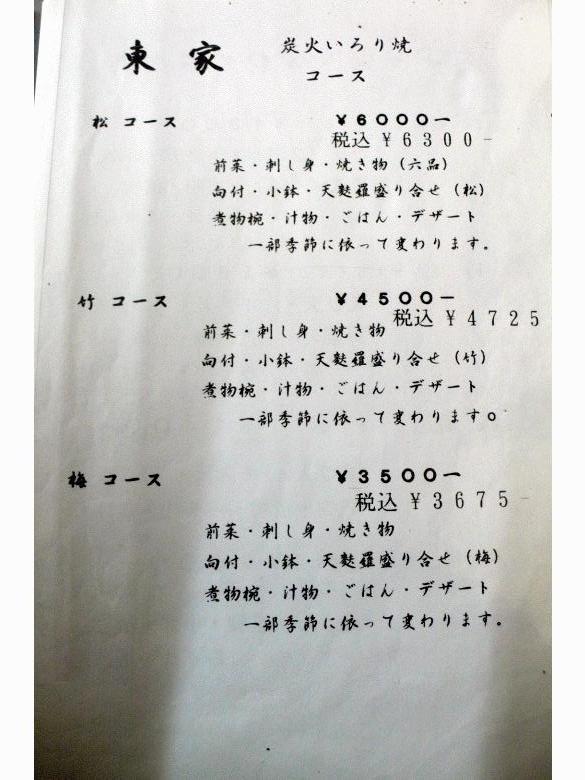 東家 炭火いろり焼
コース
松 コース ¥6000ー
税込 ¥6300-
前菜・刺し身・焼き物(六品)
向付・小鉢・天麩羅盛り合せ(松)
煮物椀・汁物・ごはん・デザート
一部季節に依って変わります。
竹 コース ¥4500ー
税込 ¥4725
前菜・刺し身・焼き物
向付・小鉢・天麩羅盛り合せ(竹)
煮物椀・汁物・ごはん・デザート
一部季節に依って変わります。
梅 コース ¥3500ー
税込 ¥3675-
前菜・刺し身・焼き物
向付・小鉢・天麩羅盛り合せ(梅)
煮物椀・汁物・ごはん・デザート
一部季節に依って変わります。